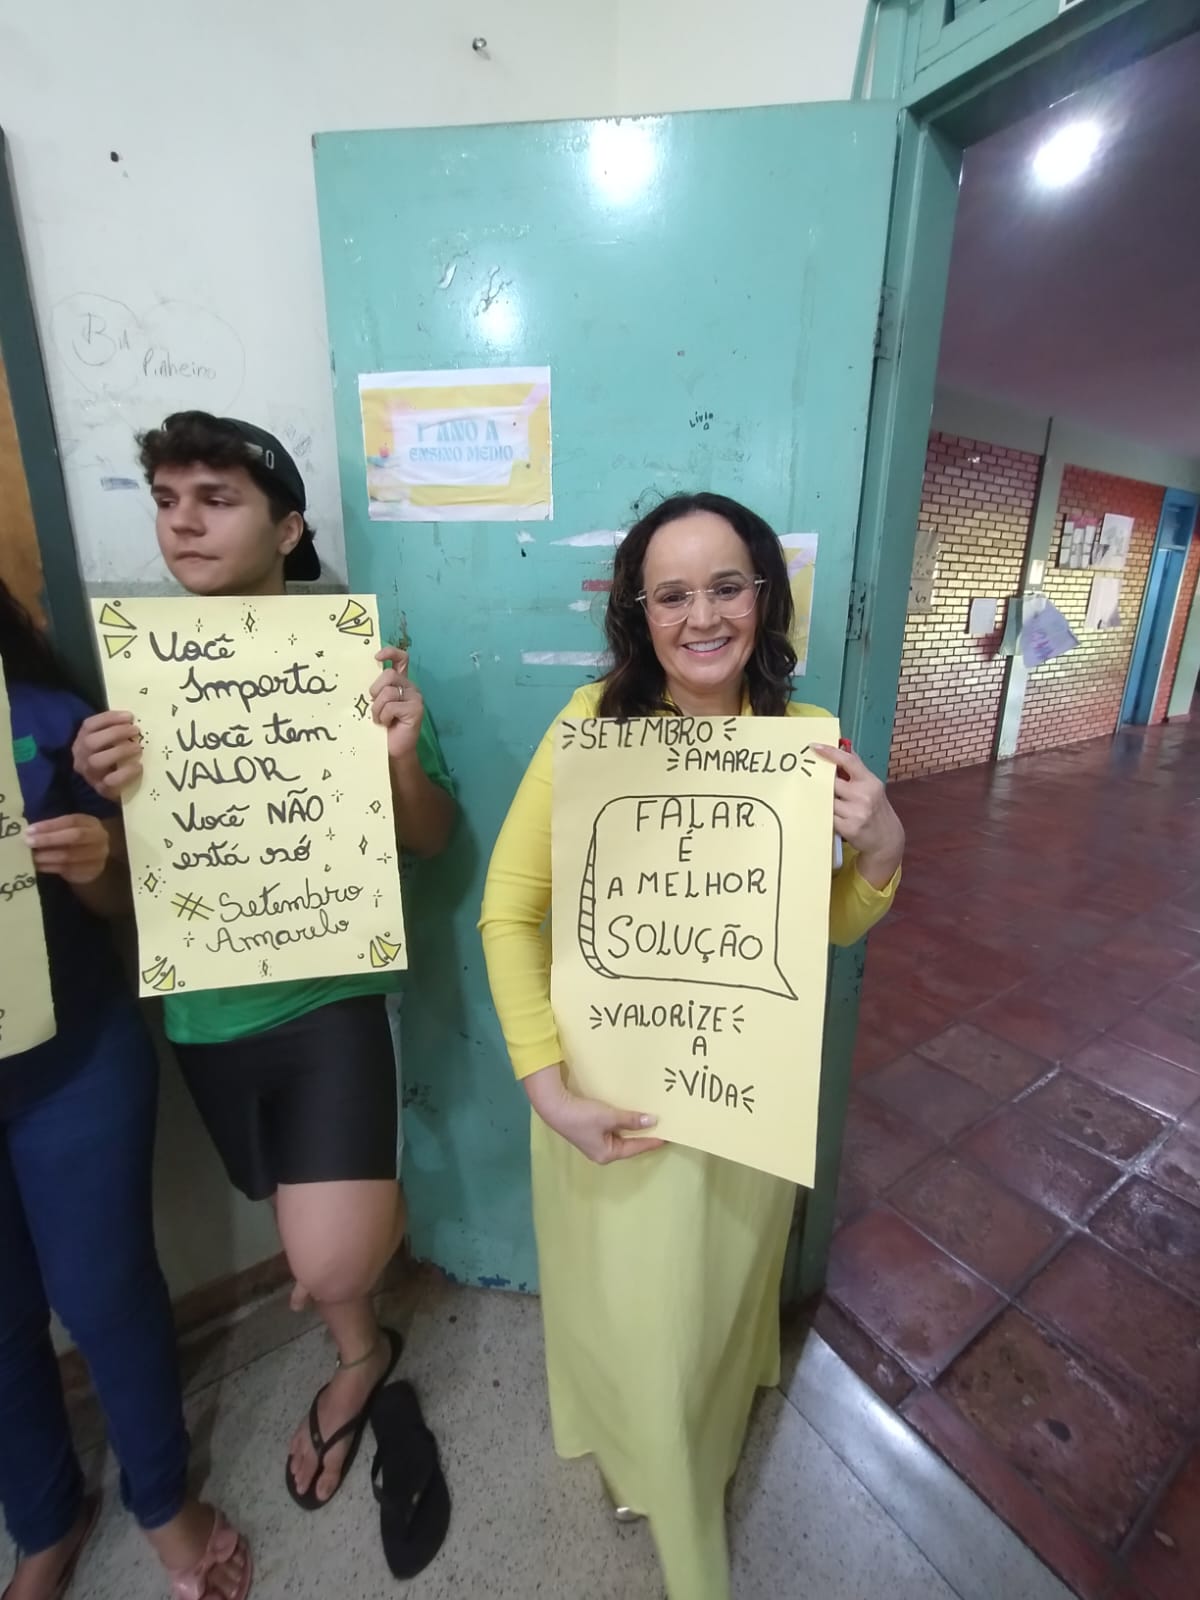 BIA
Pinheiro
1º ANO A
ENSINO MEDIO
Livia
Você
Importa
Você tem
VALOR
Você NÃO
está só
#Setembro
Amarelo
to
ção
SETEMBRO
AMARELO
FALAR
É
A MELHOR
SOLUÇÃO
VALORIZE
A
VIDA